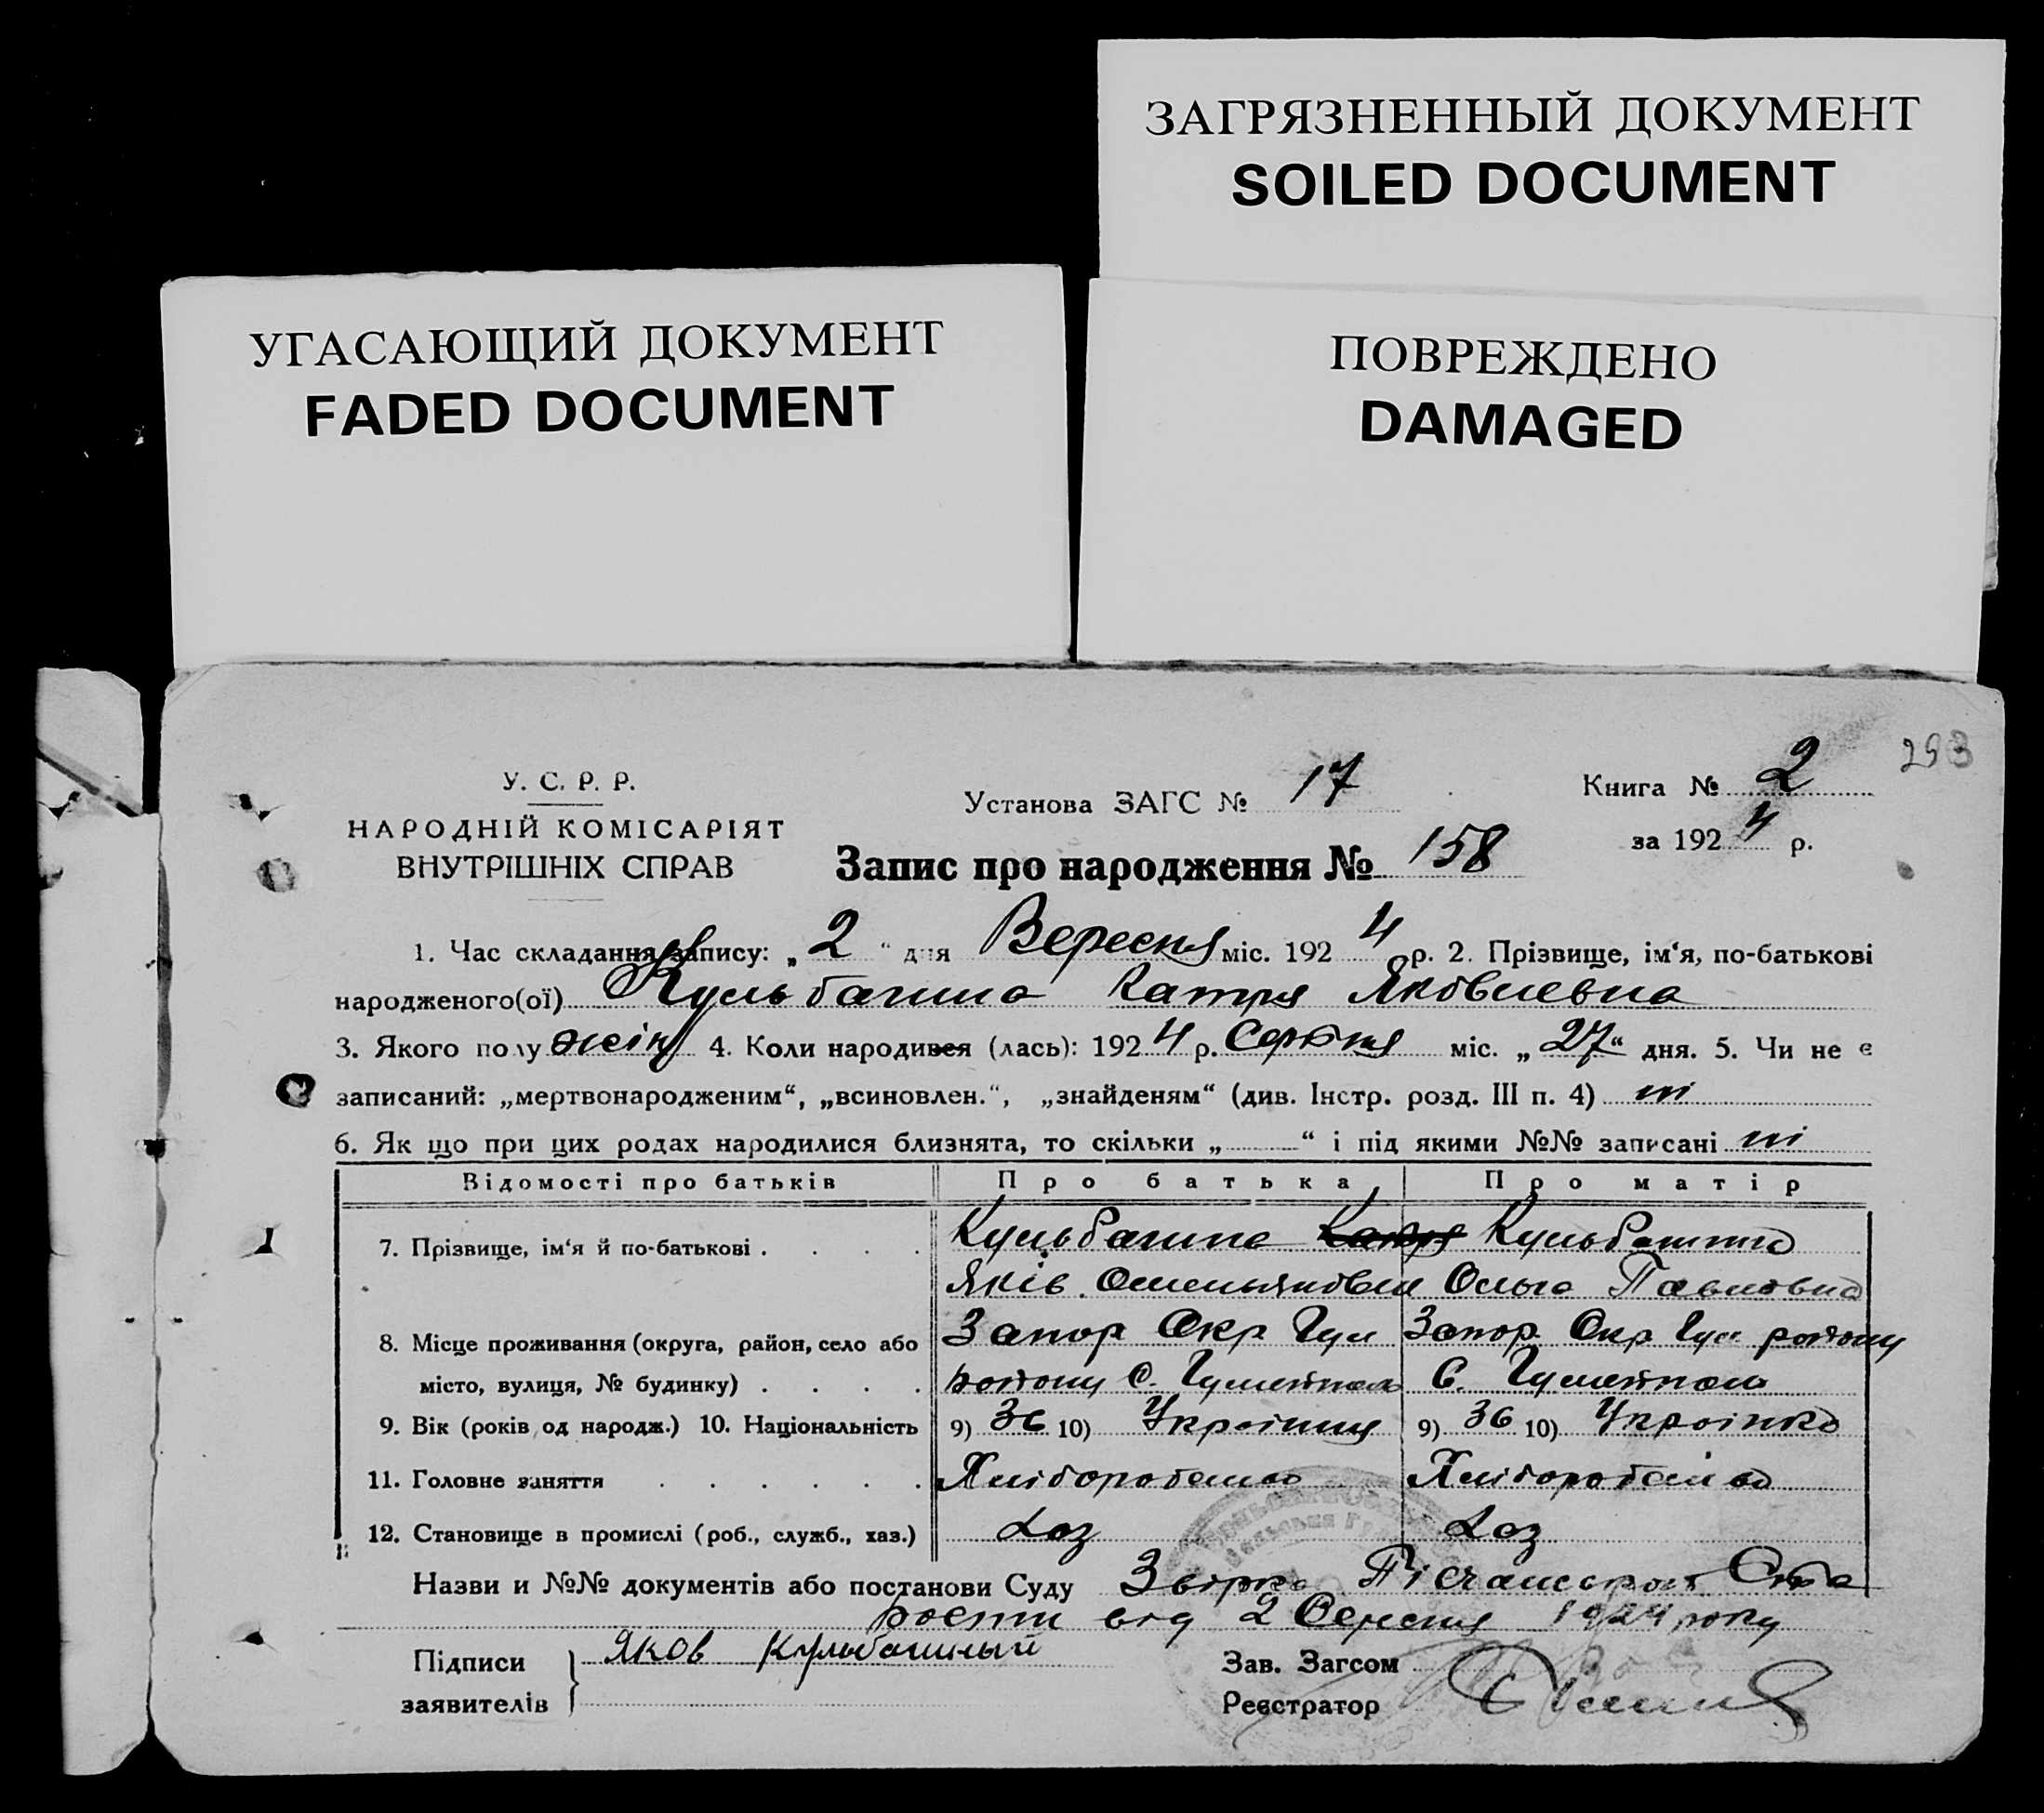 ЗАГРЯЗНЕННЫЙ ДОКУМЕНТ
SOILED DOCUMENT
УГАСАЮЩИЙ ДОКУМЕНТ
FADED DOCUMENT
ПОВРЕЖДЕНО
DAMAGED
293
У. С. Р. Р.
НАРОДНІЙ КОМІСАРІЯТ
ВНУТРІШНІХ СПРАВ
Установа ЗАГС № 17
Книга № 2
за 1924 р.
Запис про народження № 158
1. Час складання запису: „2“ дня Вересня міс. 1924 р. 2. Прізвище, ім‘я, по-батькові
народженого(ої) Кульбашна Катря Яковлевна
3. Якого полу жін 4. Коли народився (лась): 1924 р. Серпня міс. „27“ дня. 5. Чи не є
записаний: „мертвонародженим“, „всиновлен.“, „знайденям“ (див. Інстр. розд. III п. 4) ні
6. Як що при цих родах народилися близнята, то скільки „ “ і під якими №№ записані ні
Відомості про батьків Про батька Про матір
7. Прізвище, ім‘я й по-батькові Кульбашна Катря Кульбашна
Яків Омельянович Ольга Павловна
8. Місце проживання (округа, район, село або Запор Окр Гул Запор. Окр Гул району
місто, вулиця, № будинку) району С. Гуляйполе С. Гуляйполе
9. Вік (років од народж.) 10. Національність 9) 36 10) Українец 9) 36 10) Українка
11. Головне заняття Хліборобство Хліборобство
12. Становище в промислі (роб., служб., хаз.) Хаз Хаз
Назви и №№ документів або постанови Суду
від 2 Вересня 1924 року
Підписи Яков Кульбашный
заявителів
Зав. Загсом
Реєстратор